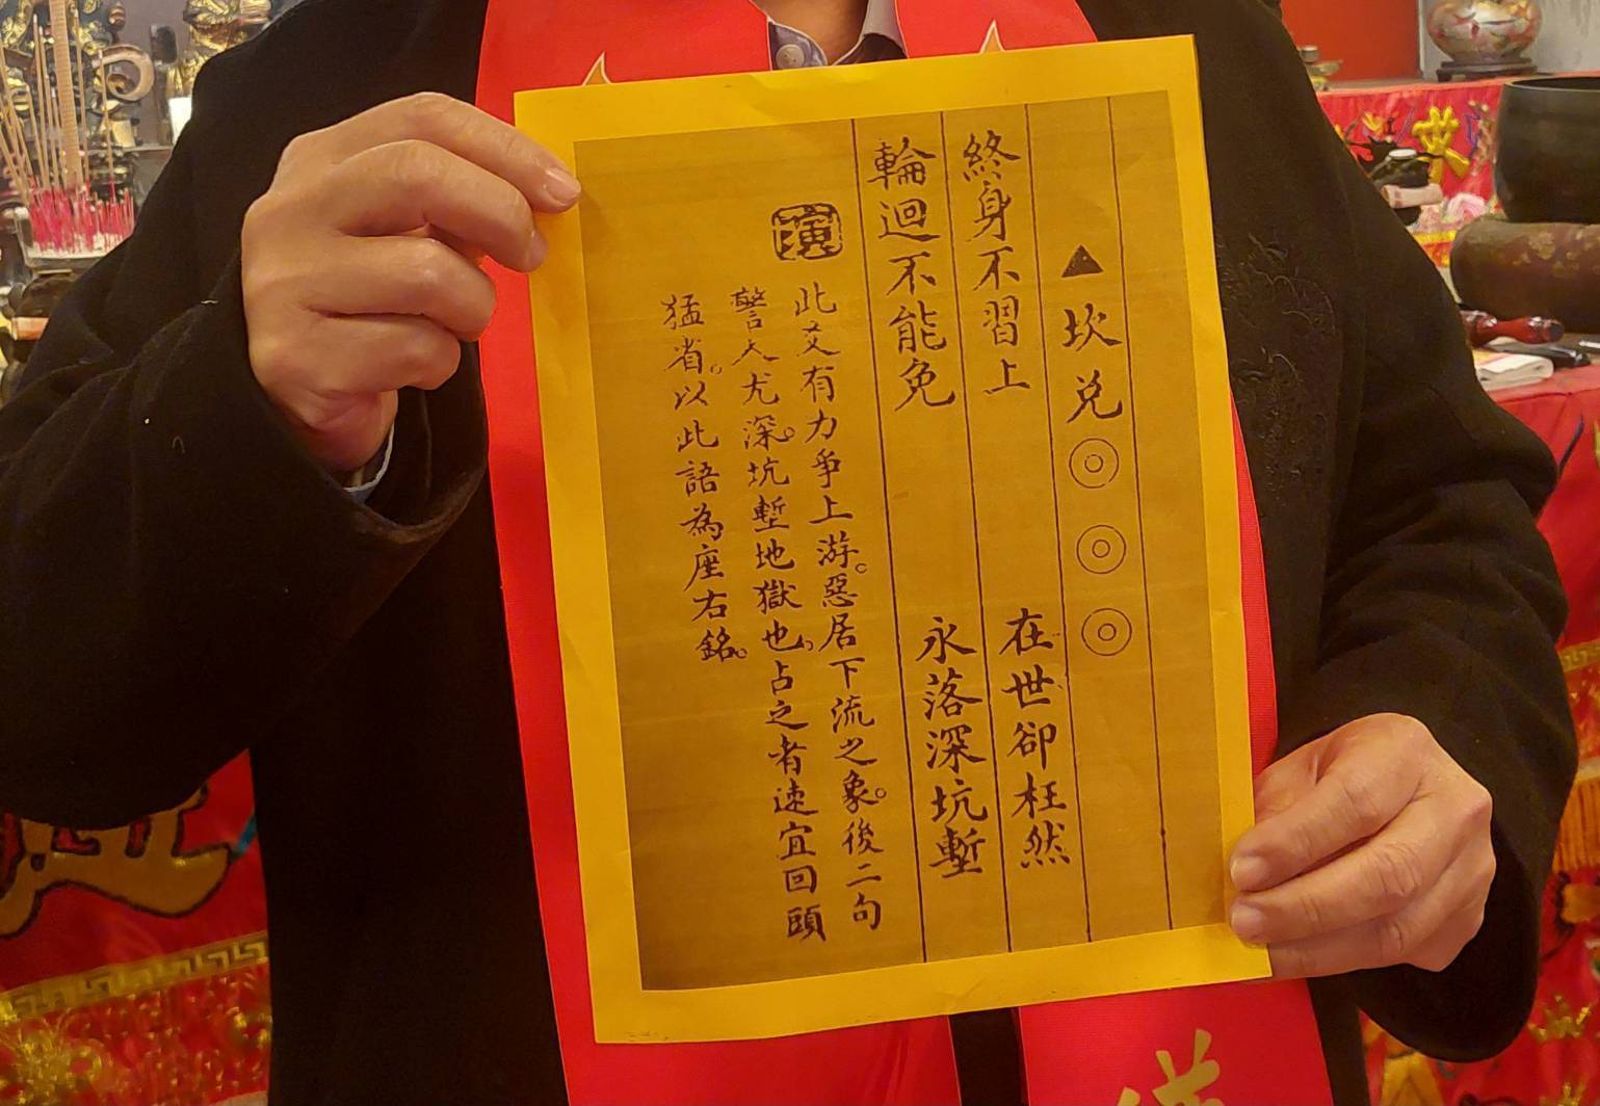 ▲坎兌◎◎◎
終身不習上　在世卻枉然
輪迴不能免　永落深坑塹
演
此爻有力爭上游。惡居下流之象。後二句
警人尤深。坑塹地獄也。占之者速宜回頭
猛省。以此語為座右銘。